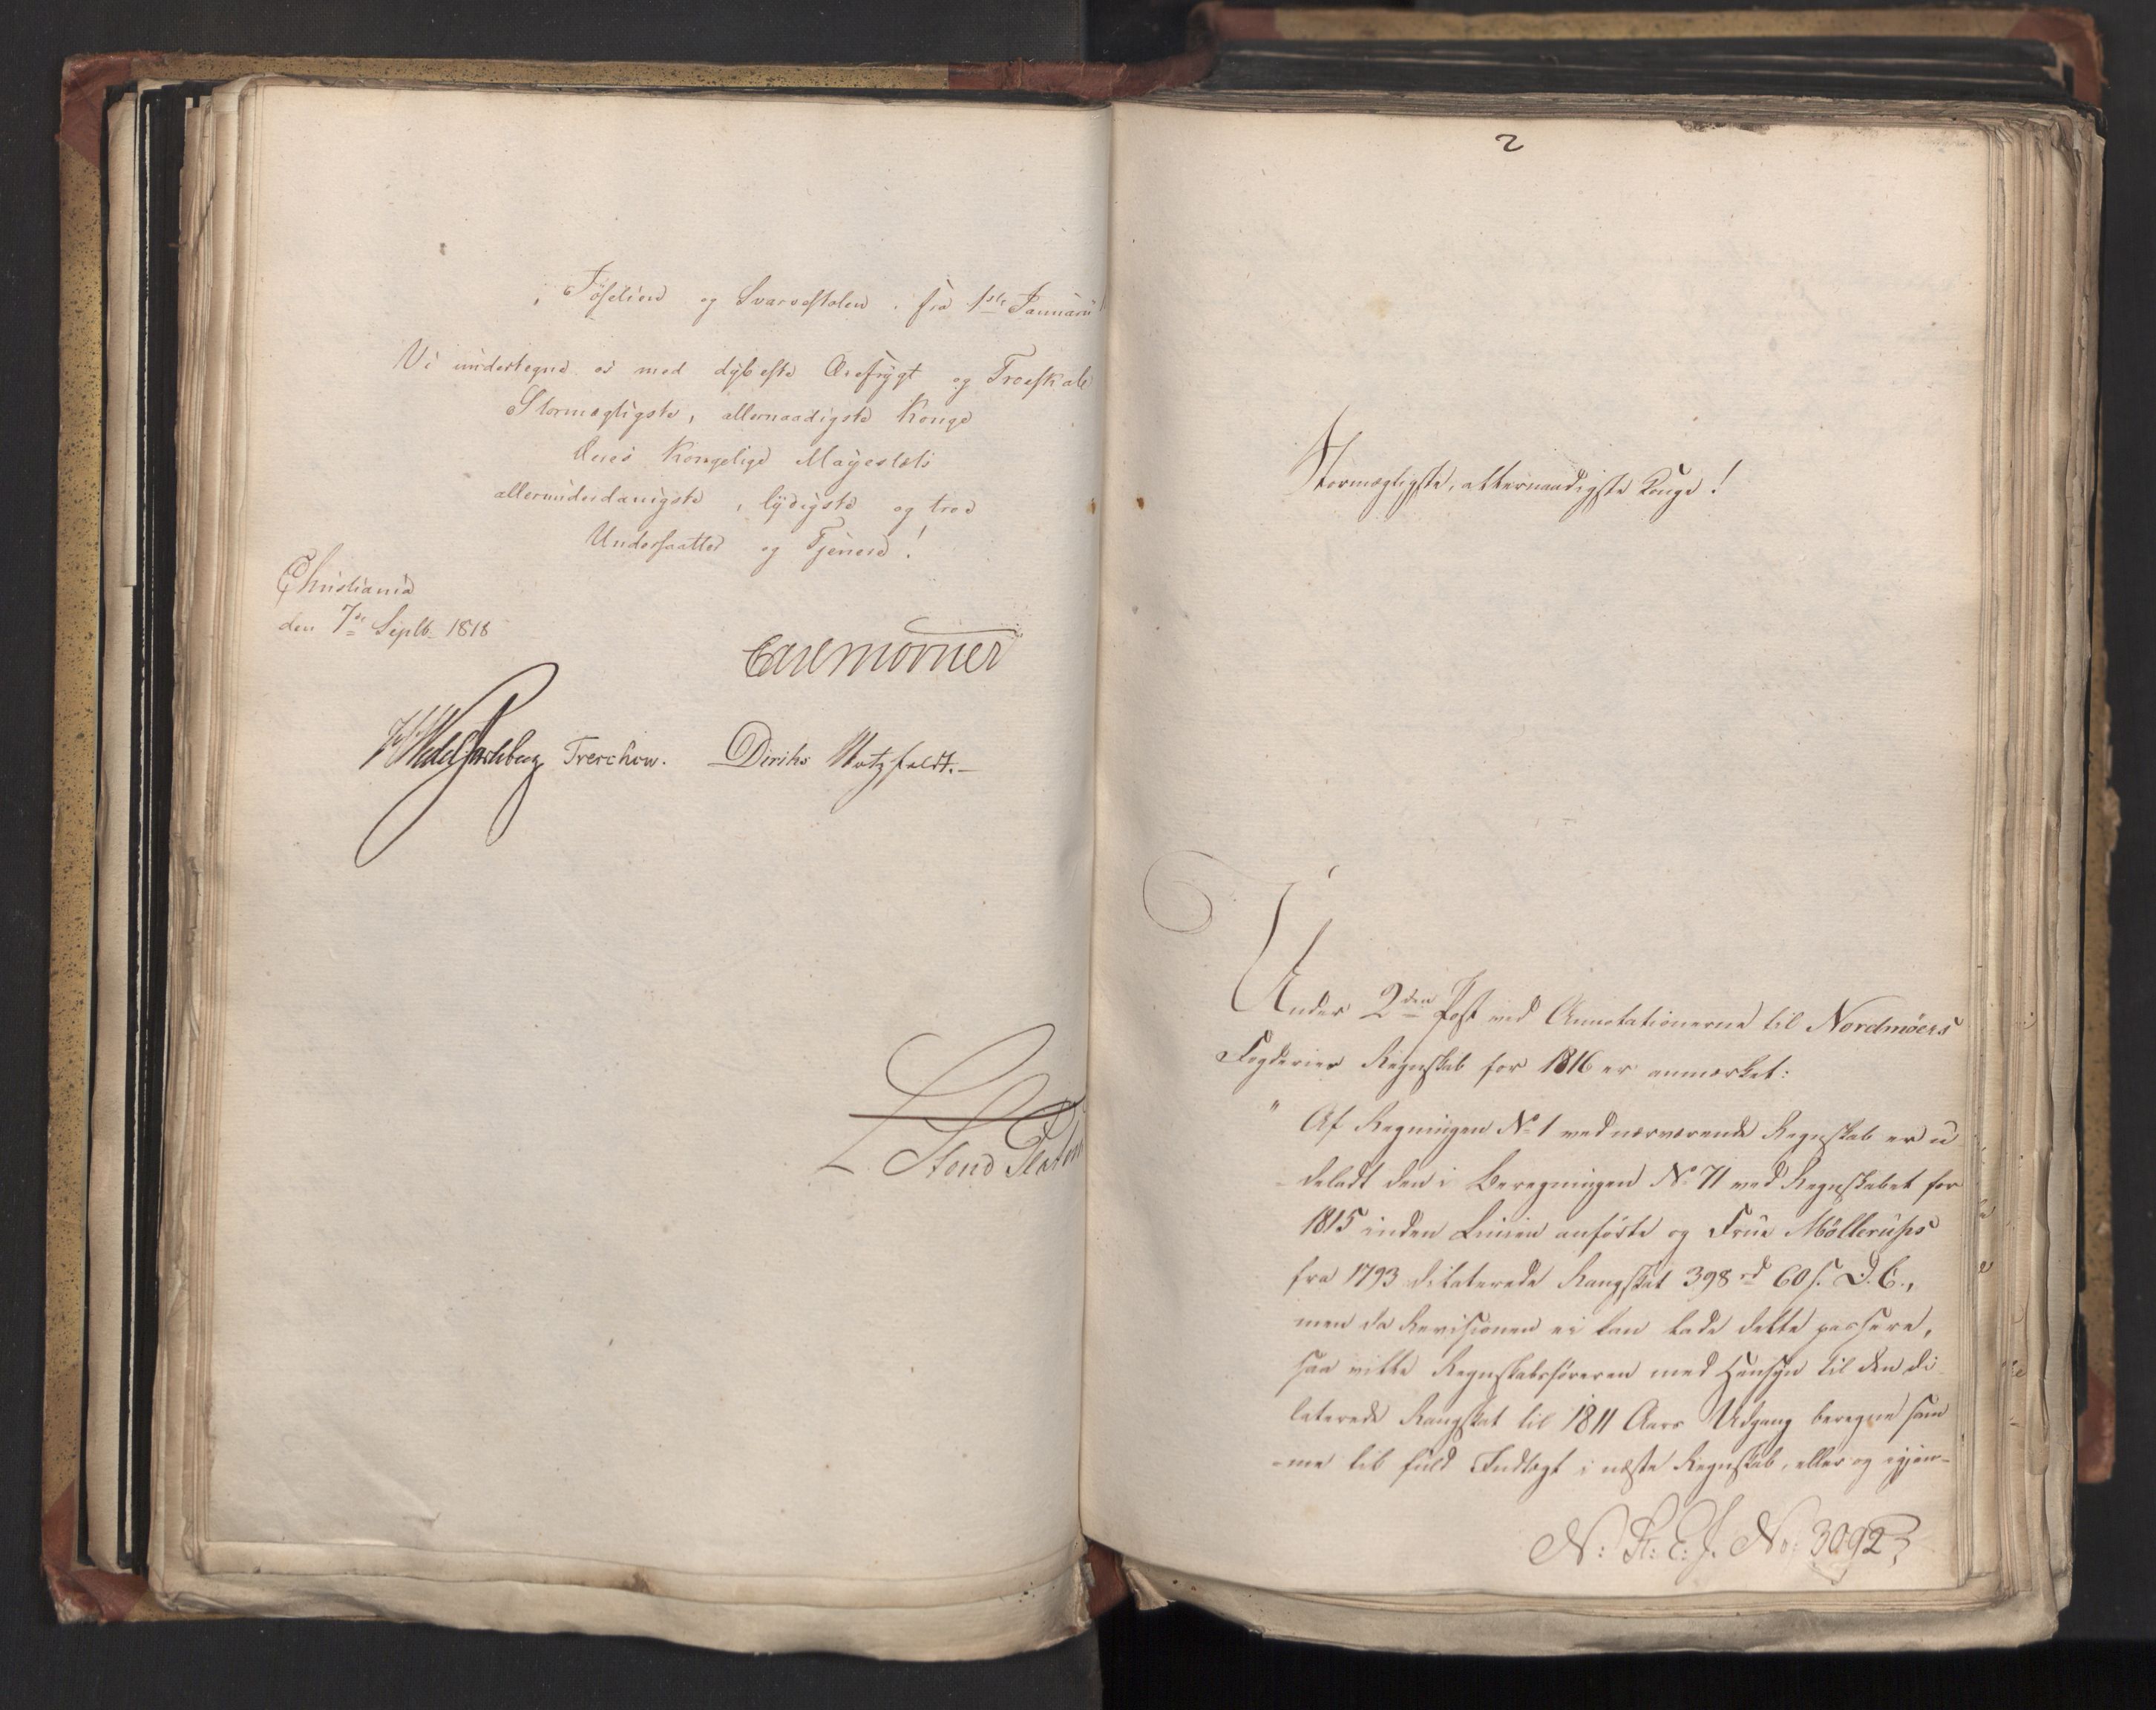 i Föselien og Svarvestolen, fra 1ste Januarii
Vi undertegne os med dybeste Ærefrygt og Troeskab
Stormægtigste, allernaadigste Konge
Deres Kongelige Mayestæts
allerunderdanigste, lydigste og troe
Undersaatter og Tjenere!
Christiania
den 7de Septb. 1818
Carl Mörner
Wedel Jarlsberg Treschow. Diriks Motzfeldt.
2
Stormægtigste, allernaadigste Konge!
Under 2den Post ved Annotationerne til Nordmöers
Fogderies Regnskab for 1816 er anmærket:
" Af Regningen No 1 ved nærværende Regnskab er u
deladt den i Beregningen No 71 ved Regnskabet for
1815 inden Linien anförte og Frue Möllerups
fra 1793 dilaterede Rangskat 398 rd 60 s. D. C.,
men da Revisionen ei kan lade dette passere,
saa vilde Regnskabsföreren med Hensyn til den di
laterede Rangskat til 1811 Aars Udgang beregne sam
-me til fuld Indtægt i næste Regnskab, eller og igjen-
N: R: E: J. No: 3092